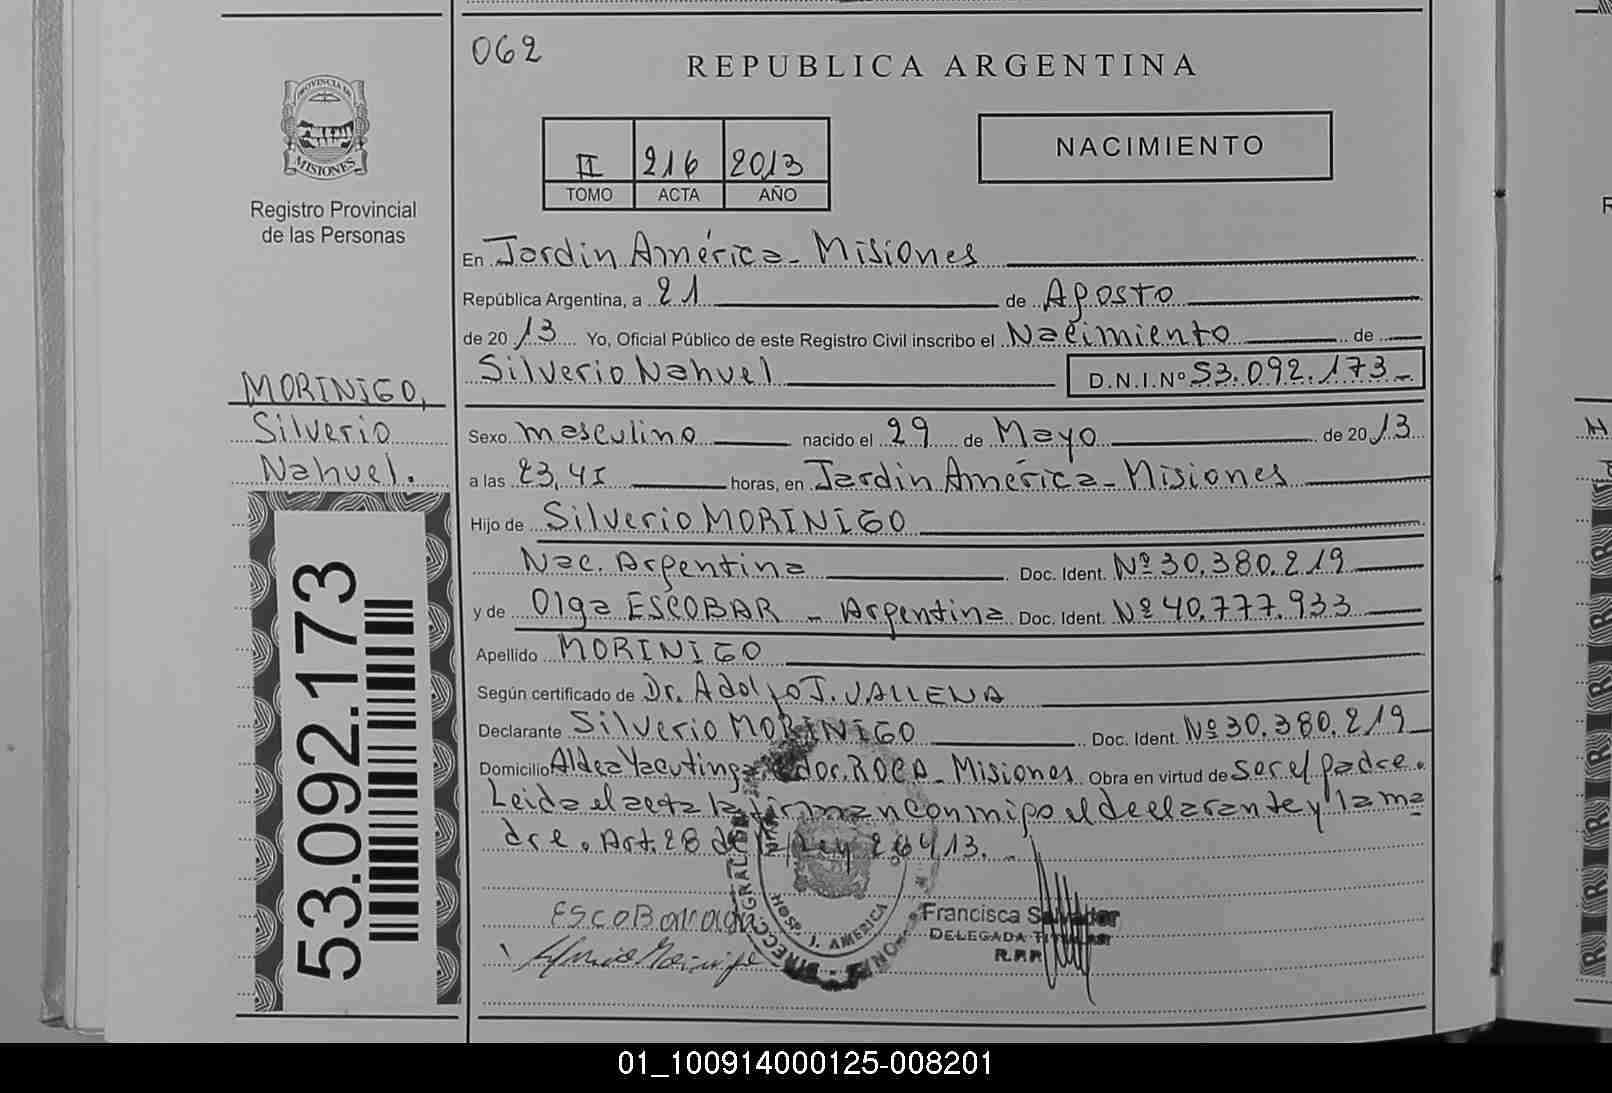 062
REPUBLICA ARGENTINA
PROVINCIA DE
MISIONES
Registro Provincial
de las Personas
II 216 2013
TOMO ACTA AÑO
NACIMIENTO
En Jardin América - Misiones
República Argentina, a 21 de Agosto
de 2013 Yo, Oficial Público de este Registro Civil inscribo el Nacimiento de
Silverio Nahuel D.N.I. Nº 53.092.173-
MORINIGO,
Silverio
Nahuel.
53.092.173
Sexo masculino nacido el 29 de Mayo de 2013
a las 23,45 horas, en Jardin América - Misiones
Hijo de Silverio MORINIGO
Nac. Argentina Doc. Ident. Nº 30.380.219
y de Olga ESCOBAR - Argentina Doc. Ident. Nº 40.777.933
Apellido MORINIGO
Según certificado de Dr. Adolfo J. VALLENA
Declarante Silverio MORINIGO Doc. Ident. Nº 30.380.219
Domicilio Aldea Yacutinga Gdor. ROCA - Misiones Obra en virtud de ser el padre.
Leida el acta la firman conmigo el declarante y la ma
dre. Art. 28 de la Ley 26413. -
ESCOBAR Olga
Silverio Morinigo
DIRECC. GRAL.
HOSP. J. AMERICA
Francisca Salvador
DELEGADA TITULAR
R.P.P.
01_100914000125-008201